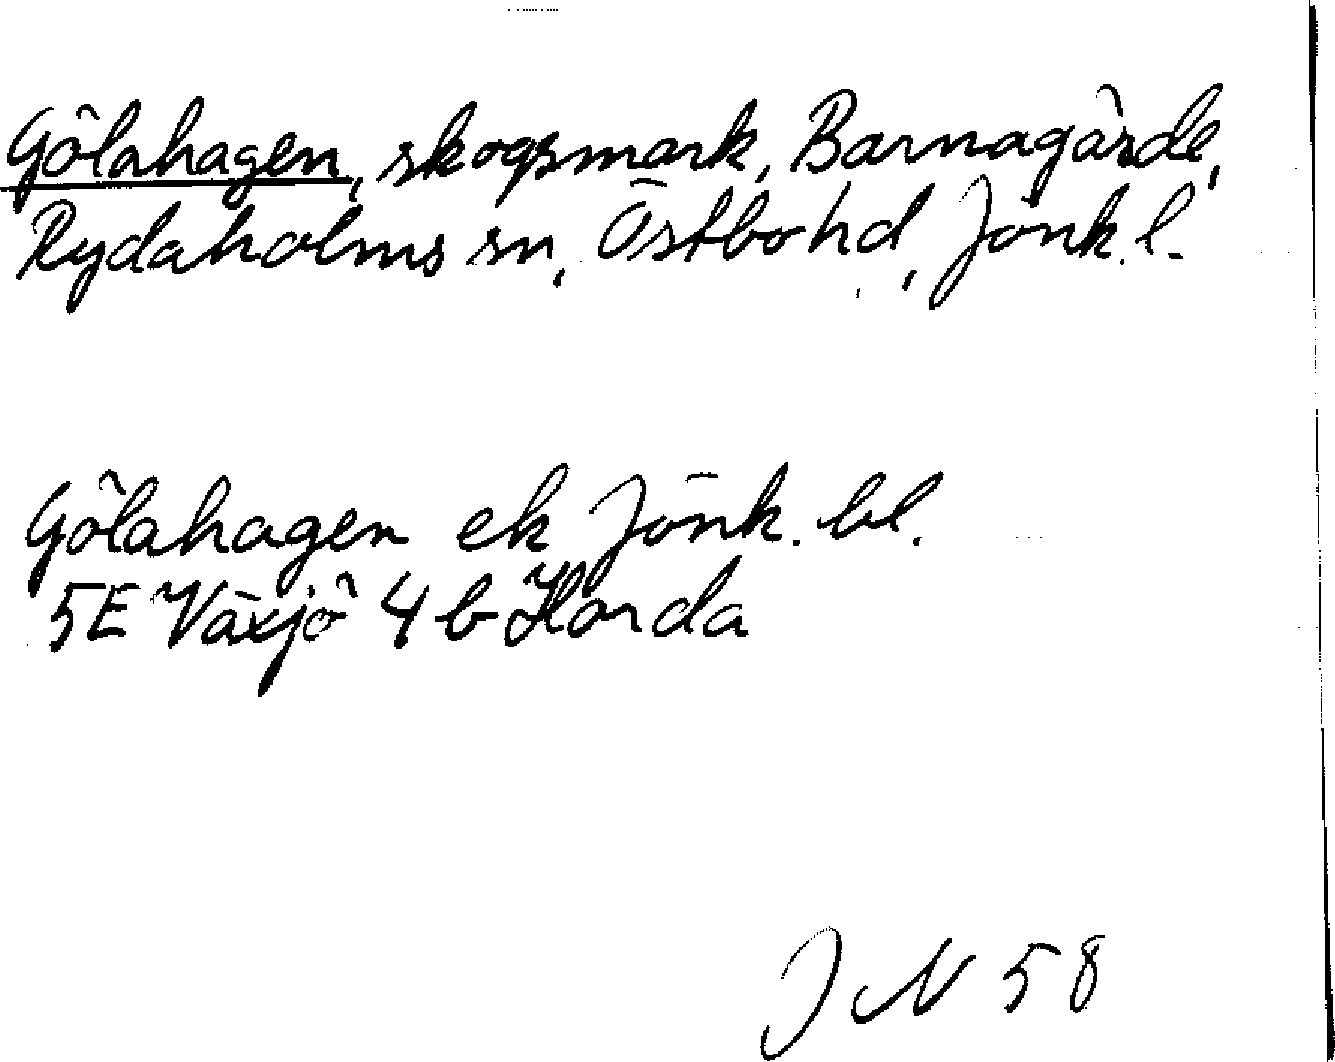 Gölahagen, skogsmark, Barnagårde,
Rydaholms sn, Östbo hd, Jönk. l.
Gölahagen ek Jönk. bl.
5E Växjö 4 b Horda
J N 58